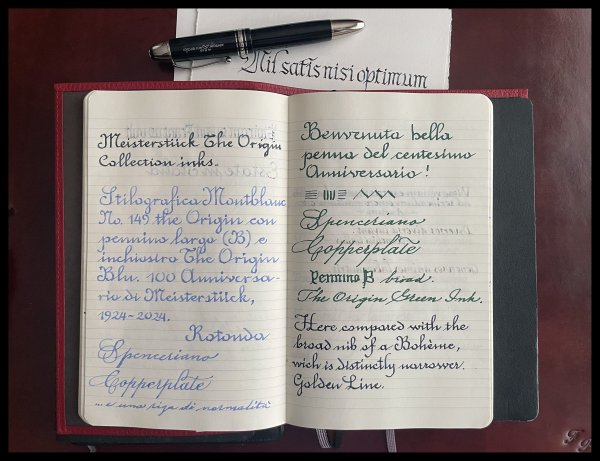 Nil satis nisi optimum
Meisterstück The Origin
Collection inks.
Stilografica Montblanc
No. 149 the Origin con
pennino largo (B) e
inchiostro The Origin
Blu. 100 Anniversa-
rio di Meisterstück,
1924-2024.
Rotonda
Spenceriano
Copperplate
...e una riga di normalità
Benvenuta bella
penna del centesimo
Anniversario!
Spenceriano
Copperplate
Pennino B broad.
The Origin Green Ink.
Here compared with the
broad nib of a Bohème,
wich is distinctly narrower.
Golden Line.